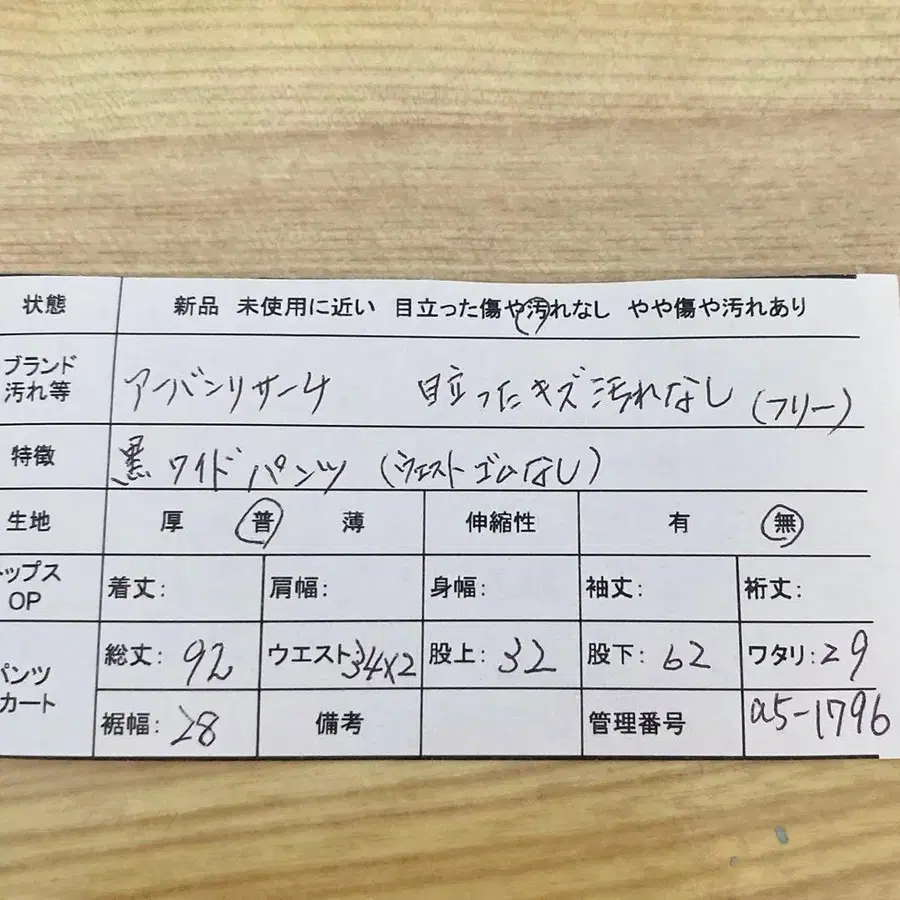 状態 新品 未使用に近い 目立った傷や汚れなし やや傷や汚れあり
ブランド
汚れ等 アーバンリサーチ 目立ったキズ汚れなし (フリー)
特徴 黒 ワイドパンツ (ウエストゴムなし)
生地 厚 普 薄 伸縮性 有 無
ップス
OP 着丈: 肩幅: 身幅: 袖丈: 裄丈:
パンツ
カート 総丈: 92 ウエスト:34×2 股上: 32 股下: 62 ワタリ:29
裾幅: 28 備考 管理番号 a5-1796